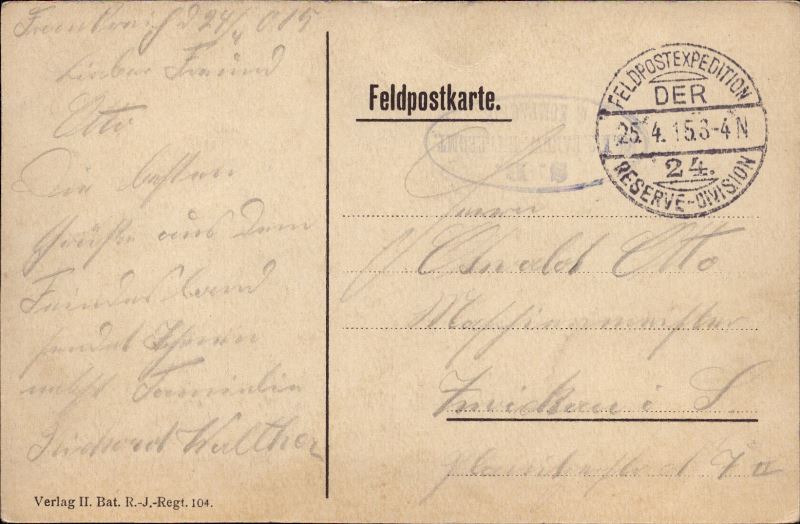 Frankreich d 24/4 015
Lieber Freund
Otto
Die besten
Grüße aus dem
Feindesland
sendet Ihnen
nebst Familie
Walther
Verlag II. Bat. R.-J.-Regt. 104.
Feldpostkarte.
FELDPOSTEXPEDITION
DER
25. 4. 15.3-4 N
24.
RESERVE-DIVISION
Herrn
Oswald Otto
Maschienmeister
Zwickau i S.